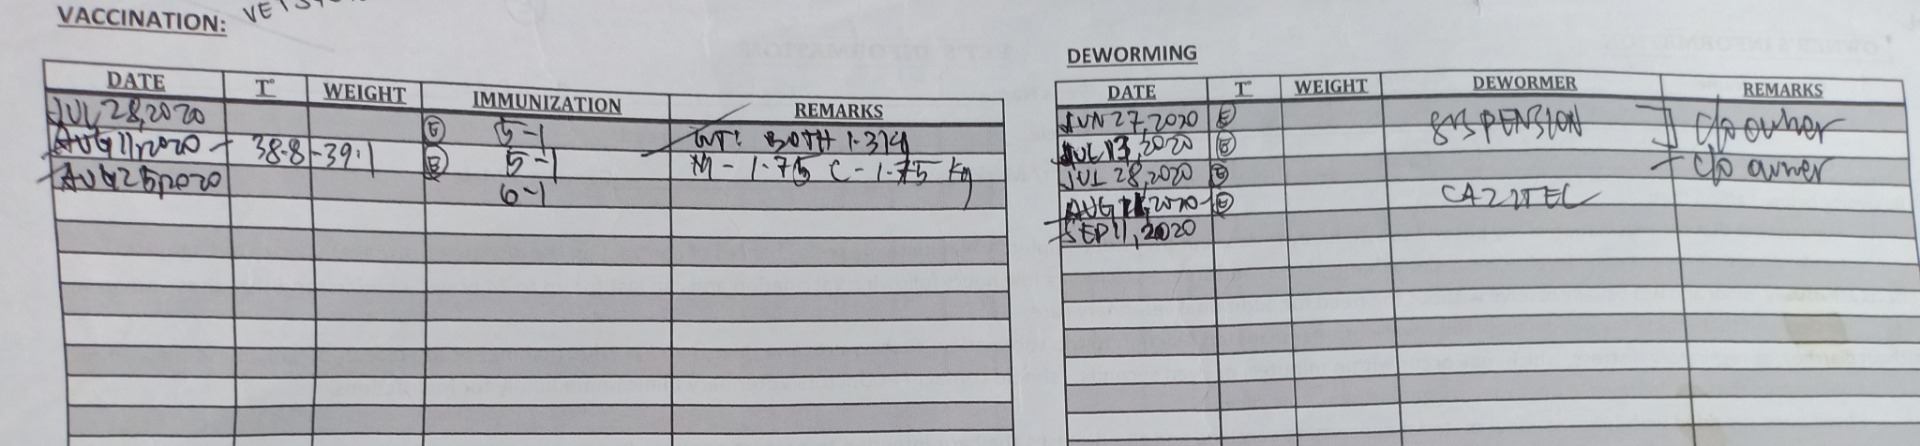 VACCINATION:
DATE T° WEIGHT IMMUNIZATION REMARKS
JUL 28, 2020 Ⓔ 5-1 WT: BOTH 1.31kg
AUG 11, 2020 - 38.8 - 39.1 Ⓔ 5-1 M - 1.75 C - 1.75 kg
AUG 25, 2020 6-1
DEWORMING
DATE T° WEIGHT DEWORMER REMARKS
JUN 27, 2020 Ⓔ SUSPENSION c/o owner
JUL 13, 2020 Ⓔ
JUL 28, 2020 Ⓔ c/o owner
AUG 11, 2020 - Ⓔ CAZITEL
SEP 11, 2020